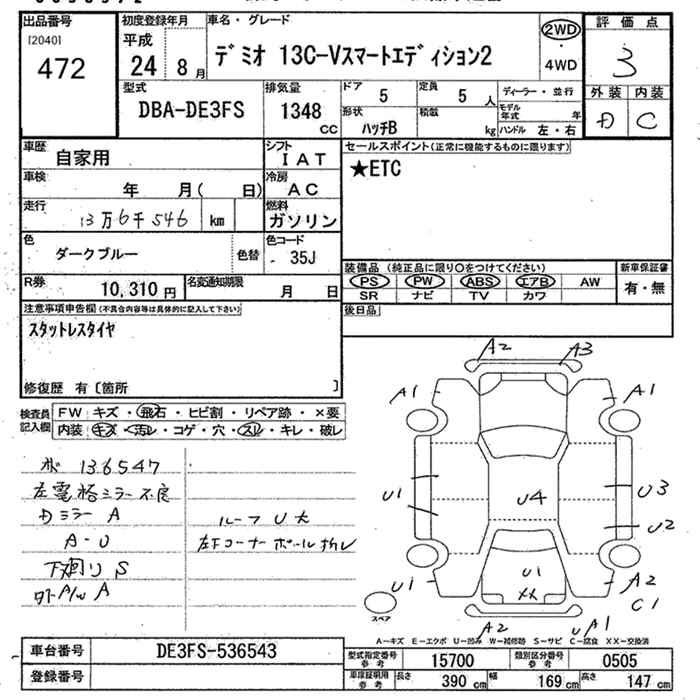 出品番号
[2040]
472
初度登録年月
平成
24 8 月
車名・グレード
デミオ 13C-Vスマートエディション2
2WD
・
4WD
評価点
3
外装 内装
D C
型式
DBA-DE3FS
排気量
1348
CC
ドア
5
定員
5 人
形状
ハッチB
積載
kg
ディーラー・並行
モデル年式 年
ハンドル 左・右
車歴
自家用
シフト
IAT
車検
年 月( 日)
冷房
AC
走行
13万6千546 km
燃料
ガソリン
色
ダークブルー
色替
色コード
35J
R券
10,310 円
名変通知期限
月 日
セールスポイント(正常に機能するものに限ります)
★ETC
装備品 (純正品に限り○をつけてください)
PS PW ABS エアB AW
SR ナビ TV カワ
新車保証書
有・無
後日品
注意事項申告欄(不具合内容等は具体的に記入して下さい)
スタットレスタイヤ
修復歴 有〔箇所 〕
検査員記入欄
FW キズ・飛石・ヒビ割・リペア跡・×要
内装 キズ・汚レ・コゲ・穴・スレ・キレ・破レ
136547
左電格ミラー不良
Dミラー A
A-U
下廻り S
ルーフ U大
左下コーナーポール折レ
A2
A3
A1
A1
U1
U4
U3
U2
U1
U1
XX
A2
C1
A2
A1
スペア
A-キズ E-エクボ U-凹み W-補修跡 S-サビ C-腐食 XX-交換済
車台番号
DE3FS-536543
登録番号
型式指定番号
参考
15700
類別区分番号
参考
0505
車庫証明用
参考
長さ
390 cm
幅
169 cm
高さ
147 cm